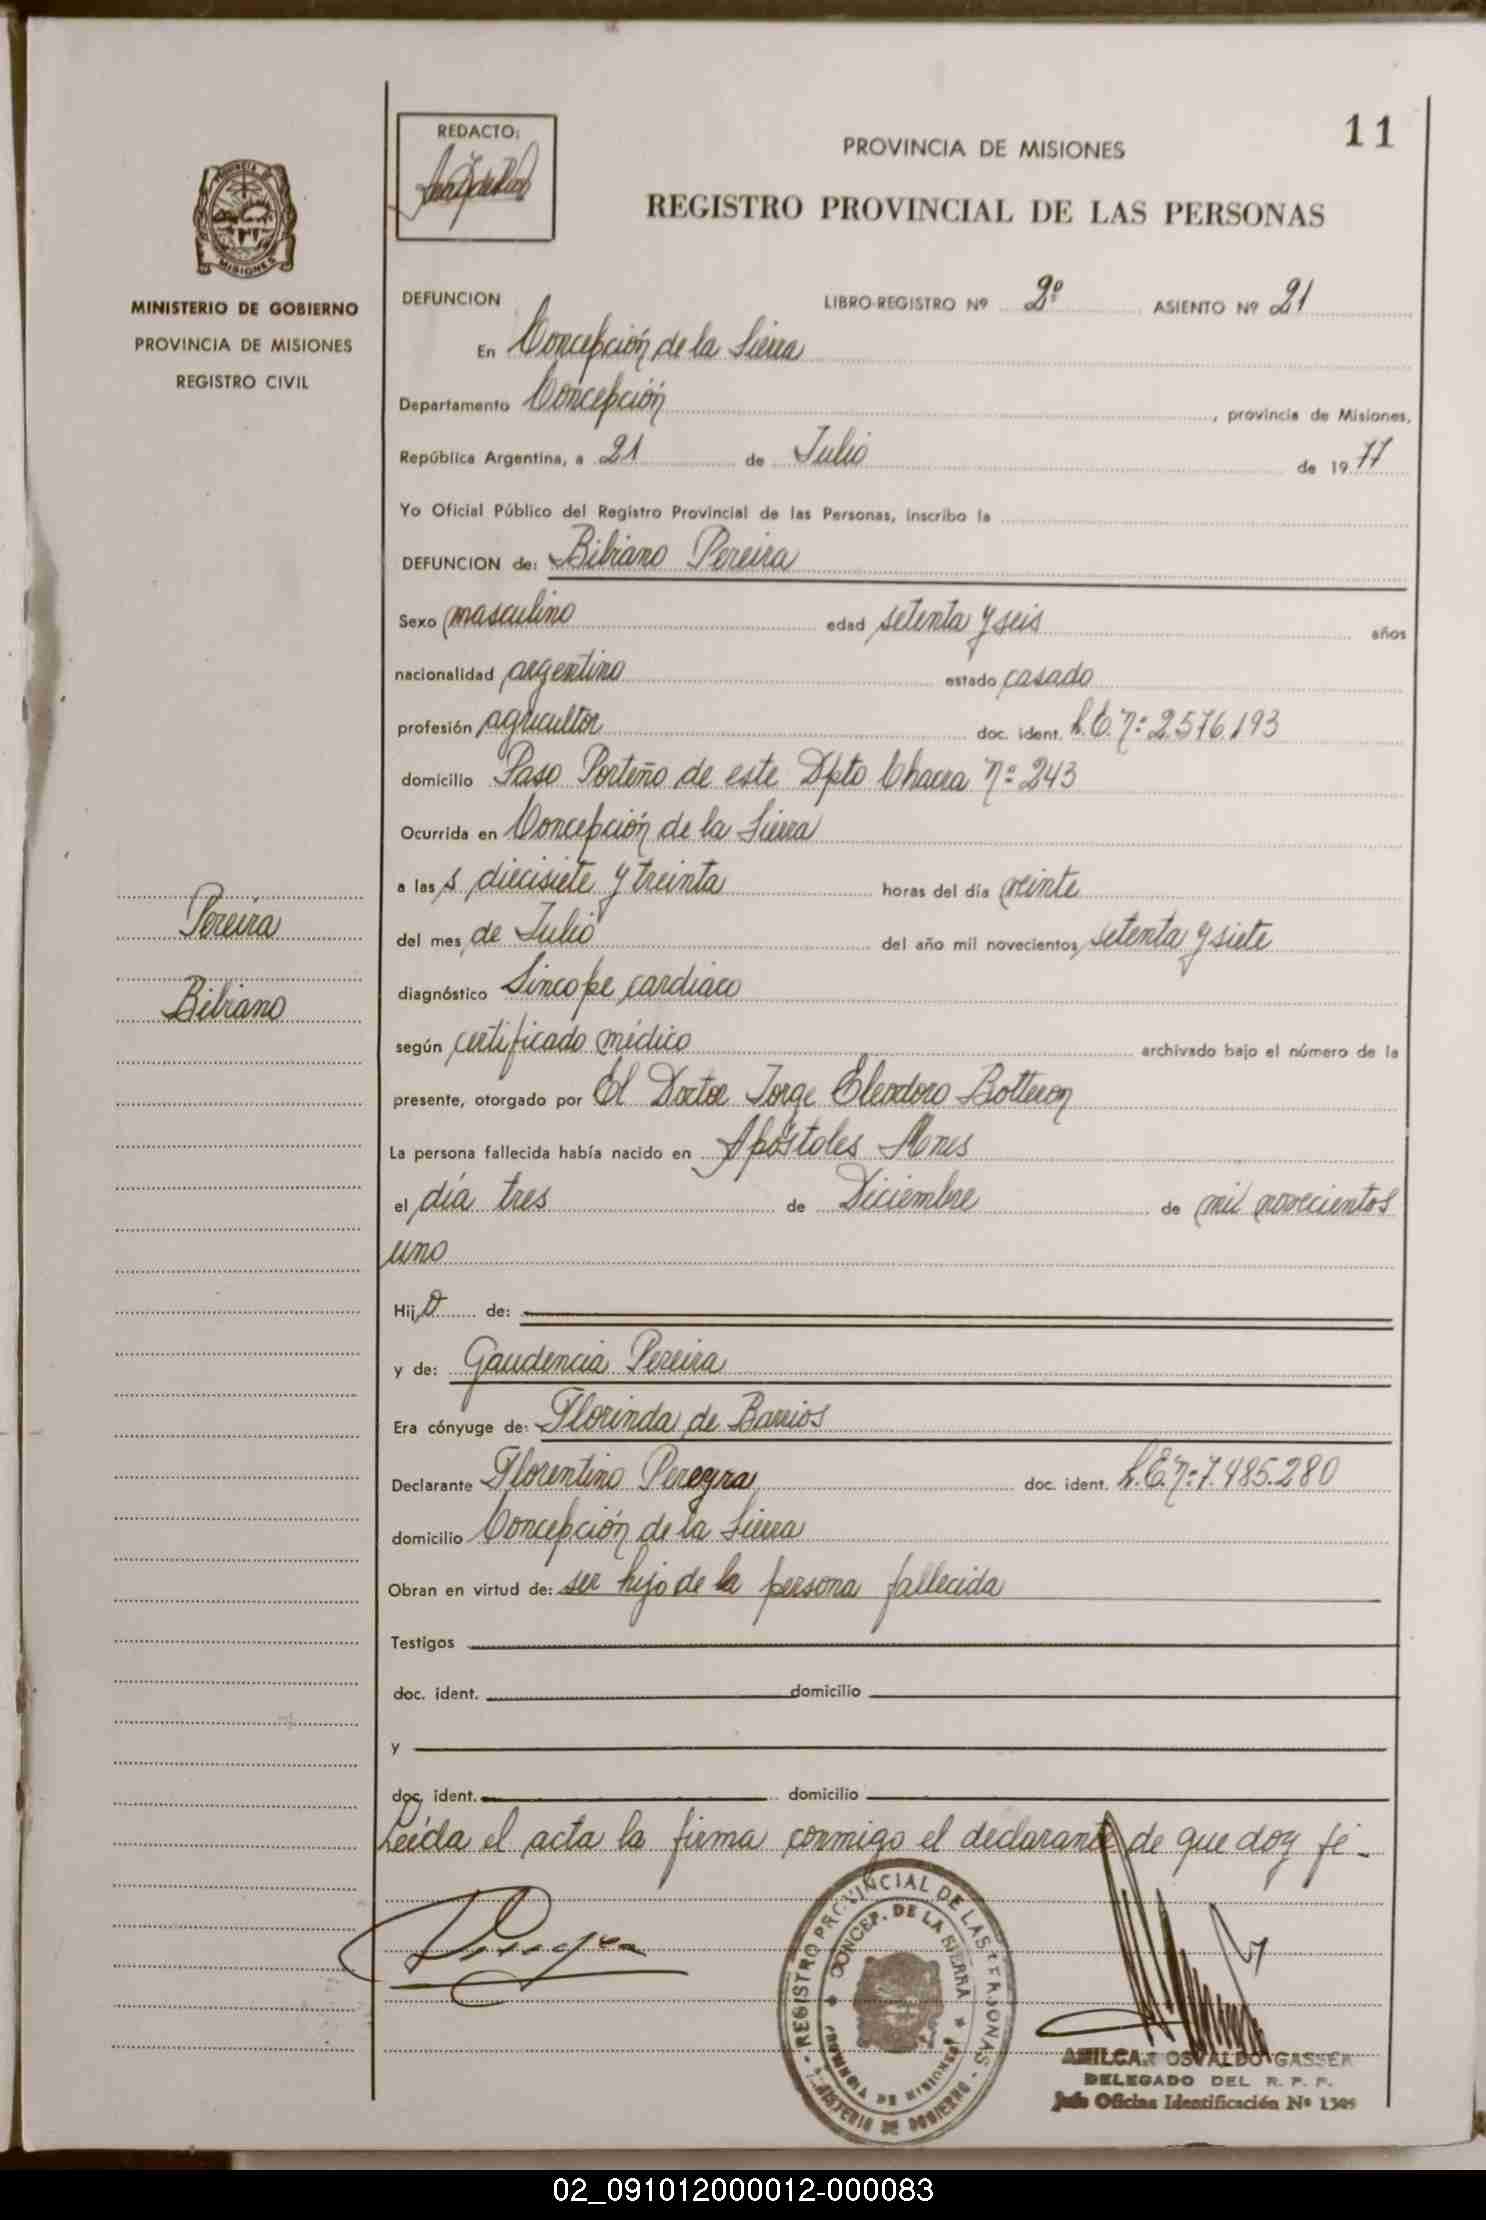 REDACTO:
11
PROVINCIA DE MISIONES
REGISTRO PROVINCIAL DE LAS PERSONAS
MISIONES
MINISTERIO DE GOBIERNO
PROVINCIA DE MISIONES
REGISTRO CIVIL
DEFUNCION LIBRO-REGISTRO Nº 2º ASIENTO Nº 21
En Concepción de la Sierra
Departamento Concepción, provincia de Misiones,
República Argentina, a 21 de Julio de 1977
Yo Oficial Público del Registro Provincial de las Personas, inscribo la
DEFUNCION de: Bibiano Pereira
Sexo masculino edad setenta y seis años
nacionalidad argentino estado casado
profesión agricultor doc. ident. L.E. nº 2.576.193
domicilio Paso Porteño de este Dpto Chacra nº 243
Ocurrida en Concepción de la Sierra
a las diecisiete y treinta horas del día veinte
del mes de Julio del año mil novecientos setenta y siete
Pereira
Bibiano
diagnóstico Sincope cardiaco
según certificado médico archivado bajo el número de la
presente, otorgado por El Doctor Jorge Eleodoro Botteron
La persona fallecida había nacido en Apóstoles Mnes
el día tres de Diciembre de mil novecientos
uno
Hijo de:
y de: Gaudencia Pereira
Era cónyuge de: Florinda de Barrios
Declarante Florentino Pereyra doc. ident. L.E. nº 7.485.280
domicilio Concepción de la Sierra
Obran en virtud de: ser hijo de la persona fallecida
Testigos
doc. ident. domicilio
y
doc. ident. domicilio
Leída el acta la firma conmigo el declarante de que doy fé-
REGISTRO PROVINCIAL DE LAS PERSONAS
CONCEP. DE LA SIERRA
PROVINCIA DE MISIONES
MINISTERIO DE GOBIERNO
AMILCAR OSVALDO GASSER
DELEGADO DEL R. P. P.
Jefe Oficina Identificación Nº 1309
02_091012000012-000083